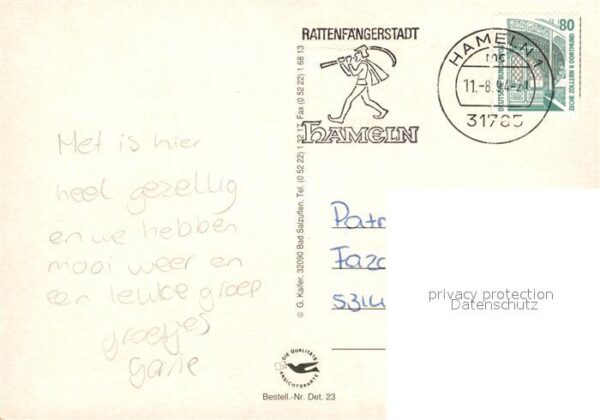 RATTENFÄNGERSTADT
HAMELN
HAMELN 1
mc
11.-8.94-21
31785
80
DEUTSCHE BUNDESPOST
ZECHE ZOLLERN II DORTMUND
Met is hier
heel gezellig
en we hebben
mooi weer en
een leuke groep
groetjes
© G. Kaifer, 32090 Bad Salzuflen, Tel. (0 52 22) 1 32 17, Fax (0 52 22) 1 68 13
Patr
Faza
privacy protection
Datenschutz
DIE QUALITÄTS
ANSICHTSKARTE
Bestell.-Nr. Det. 23